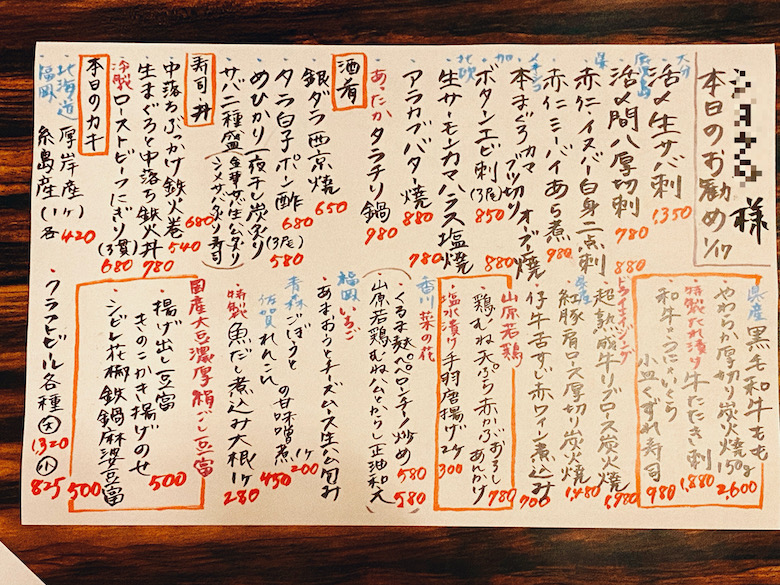 様
本日のお勧め 1/17
大分
活〆生サバ刺 1,350
鹿児島
活〆間八厚切刺 780
赤仁・イスバー白身二点刺 880
県
赤仁ミーバイあら煮 980
メキシコ
本まぐろカマ オーブン焼
ブツ切り 880
加
ボタンエビ刺(3尾) 850
北欧
生サーモンカマハラス塩焼 780
アラカブバター焼 880
あったかタラチリ鍋 980
酒肴
銀ダラ西京焼 650
タラ白子ポン酢 680
めひかり一夜干し炭炙り(3尾) 580
サバ二種盛
寿司・丼
680
中落ちぶっかけ鉄火巻 540
生まぐろと中落ち鉄火丼 780
冷製 ローストビーフにぎり(3貫) 680
本日のカキ
北海道 厚岸産(1ケ) 420
福岡 糸島産(1ケ)
県産 黒毛和牛もも
やわらか厚切り炭火焼150g 2,600
特製たれ漬け牛たたき刺 1,880
和牛うにいくら
小皿くずれ寿司 980
ドライエイジング
超熟成牛リブロース炭火焼 1,980
県産
紅豚肩ロース厚切り炭火焼 1,480
仔牛舌すじ赤ワイン煮込み 700
山原若鶏
鶏むね天ぷら赤かぶおろしあんかけ 780
塩水漬け手羽唐揚げ2ケ 300
香川 菜の花
くるま麩ペペロンチーノ炒め 580
山原若鶏むねハムとからし正油和え 580
福岡 いちご
あまおうとチーズムース生ハム包み 1ケ 200
青森 ごぼうと
佐賀 れんこんの甘味噌煮 450
特製 魚だし煮込み大根1ケ 280
国産大豆濃厚絹ごし豆富
揚げ出し豆富
きのこかき揚げのせ 500
シビレ花椒鉄鍋麻婆豆富 500
・クラフトビール各種 大 1,320
小 825